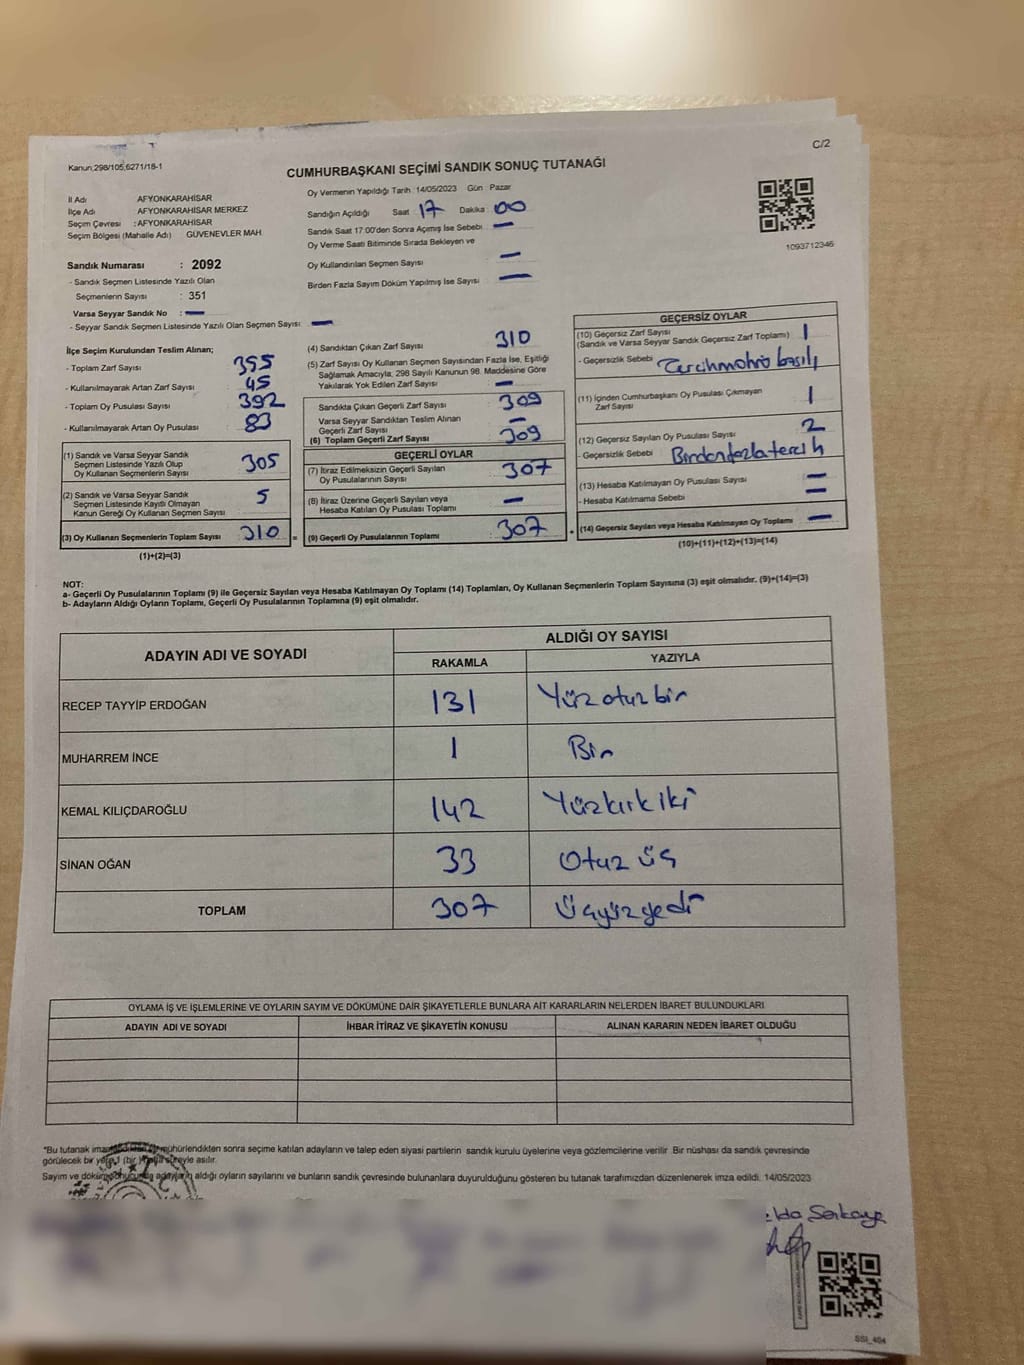 C/2
Kanun,298/105,6271/18-1
CUMHURBAŞKANI SEÇİMİ SANDIK SONUÇ TUTANAĞI
İl Adı AFYONKARAHİSAR
İlçe Adı AFYONKARAHİSAR MERKEZ
Seçim Çevresi : AFYONKARAHİSAR
Seçim Bölgesi (Mahalle Adı) GÜVENEVLER MAH.
Sandık Numarası : 2092
- Sandık Seçmen Listesinde Yazılı Olan
Seçmenlerin Sayısı : 351
Varsa Seyyar Sandık No : —
- Seyyar Sandık Seçmen Listesinde Yazılı Olan Seçmen Sayısı: —
Oy Vermenin Yapıldığı Tarih :14/05/2023 Gün : Pazar
Sandığın Açıldığı Saat : 17 Dakika : 00
Sandık Saat 17.00'den Sonra Açımış İse Sebebi : —
Oy Verme Saati Bitiminde Sırada Bekleyen ve
Oy Kullandırılan Seçmen Sayısı : —
Birden Fazla Sayım Döküm Yapılmış İse Sayısı : —
1093712346
İlçe Seçim Kurulundan Teslim Alınan;
- Toplam Zarf Sayısı : 395
- Kullanılmayarak Artan Zarf Sayısı : 45
- Toplam Oy Pusulası Sayısı : 392
- Kullanılmayarak Artan Oy Pusulası : 83
(1) Sandık ve Varsa Seyyar Sandık
Seçmen Listesinde Yazılı Olup
Oy Kullanan Seçmenlerin Sayısı : 305
(2) Sandık ve Varsa Seyyar Sandık
Seçmen Listesinde Kayıtlı Olmayan
Kanun Gereği Oy Kullanan Seçmen Sayısı : 5
(3) Oy Kullanan Seçmenlerin Toplam Sayısı : 310
(1)+(2)=(3)
(4) Sandıktan Çıkan Zarf Sayısı : 310
(5) Zarf Sayısı Oy Kullanan Seçmen Sayısından Fazla İse, Eşitliği
Sağlamak Amacıyla, 298 Sayılı Kanunun 98. Maddesine Göre
Yakılarak Yok Edilen Zarf Sayısı : —
Sandıkta Çıkan Geçerli Zarf Sayısı : 309
Varsa Seyyar Sandıktan Teslim Alınan
Geçerli Zarf Sayısı : —
(6) Toplam Geçerli Zarf Sayısı : 309
GEÇERLİ OYLAR
(7) İtiraz Edilmeksizin Geçerli Sayılan
Oy Pusulalarının Sayısı : 307
(8) İtiraz Üzerine Geçerli Sayılan veya
Hesaba Katılan Oy Pusulası Toplamı : —
(9) Geçerli Oy Pusulalarının Toplamı : 307
GEÇERSİZ OYLAR
(10) Geçersiz Zarf Sayısı : 1
(Sandık ve Varsa Seyyar Sandık Geçersiz Zarf Toplamı)
- Geçersizlik Sebebi : Tercihmührü basılı
(11) İçinden Cumhurbaşkanı Oy Pusulası Çıkmayan
Zarf Sayısı : 1
(12) Geçersiz Sayılan Oy Pusulası Sayısı : 2
- Geçersizlik Sebebi : Birdenfazlatercih
(13) Hesaba Katılmayan Oy Pusulası Sayısı : —
- Hesaba Katılmama Sebebi : —
(14) Geçersiz Sayılan veya Hesaba Katılmayan Oy Toplamı : —
(10)+(11)+(12)+(13)=(14)
NOT:
a- Geçerli Oy Pusulalarının Toplamı (9) ile Geçersiz Sayılan veya Hesaba Katılmayan Oy Toplamı (14) Toplamları, Oy Kullanan Seçmenlerin Toplam Sayısına (3) eşit olmalıdır. (9)+(14)=(3)
b- Adayların Aldığı Oyların Toplamı, Geçerli Oy Pusulalarının Toplamına (9) eşit olmalıdır.
ADAYIN ADI VE SOYADI ALDIĞI OY SAYISI
RAKAMLA YAZIYLA
RECEP TAYYİP ERDOĞAN 131 Yüzotuzbir
MUHARREM İNCE 1 Bir
KEMAL KILIÇDAROĞLU 142 Yüzkırkiki
SİNAN OĞAN 33 Otuz üç
TOPLAM 307 Üçyüzyedi
OYLAMA İŞ VE İŞLEMLERİNE VE OYLARIN SAYIM VE DÖKÜMÜNE DAİR ŞİKAYETLERLE BUNLARA AİT KARARLARIN NELERDEN İBARET BULUNDUKLARI
ADAYIN ADI VE SOYADI İHBAR İTİRAZ VE ŞİKAYETİN KONUSU ALINAN KARARIN NEDEN İBARET OLDUĞU
*Bu tutanak mühürlendikten sonra seçime katılan adayların ve talep eden siyasi partilerin sandık kurulu üyelerine veya gözlemcilerine verilir. Bir nüshası da sandık çevresinde
görülecek bir yere 1 (bir) süreyle asılır.
Sayım ve döküm adayların aldığı oyların sayılarını ve bunların sandık çevresinde bulunanlara duyurulduğunu gösteren bu tutanak tarafımızdan düzenlenerek imza edildi. 14/05/2023
SSI_404